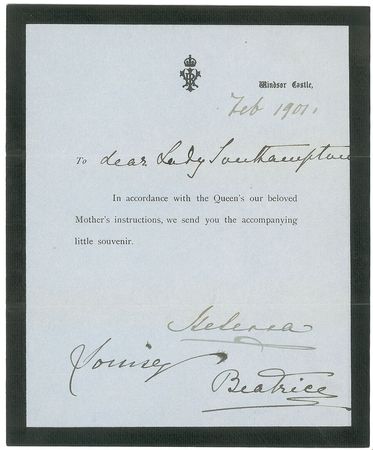 Windsor Castle,
Feb 1901.
To dear Lady Southampton
In accordance with the Queen's our beloved
Mother's instructions, we send you the accompanying
little souvenir.
Helena
Louise
Beatrice